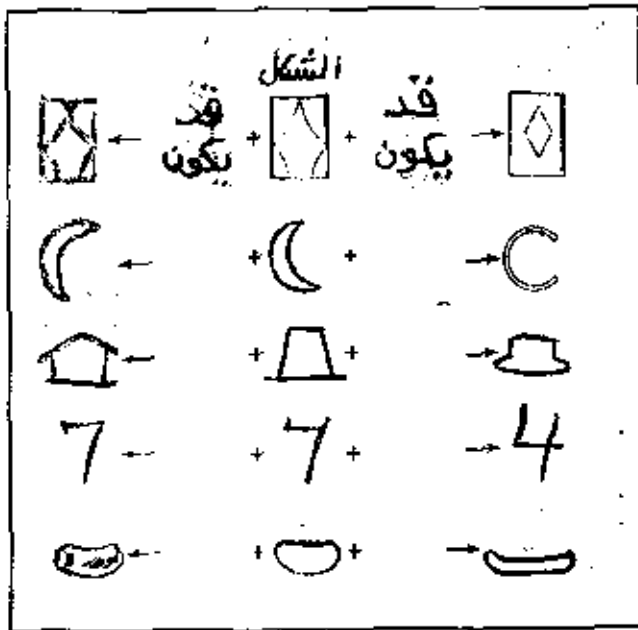 الشكل
قد يكون + + قد يكون
+ +
+ +
7 + 7 + 4
+ +